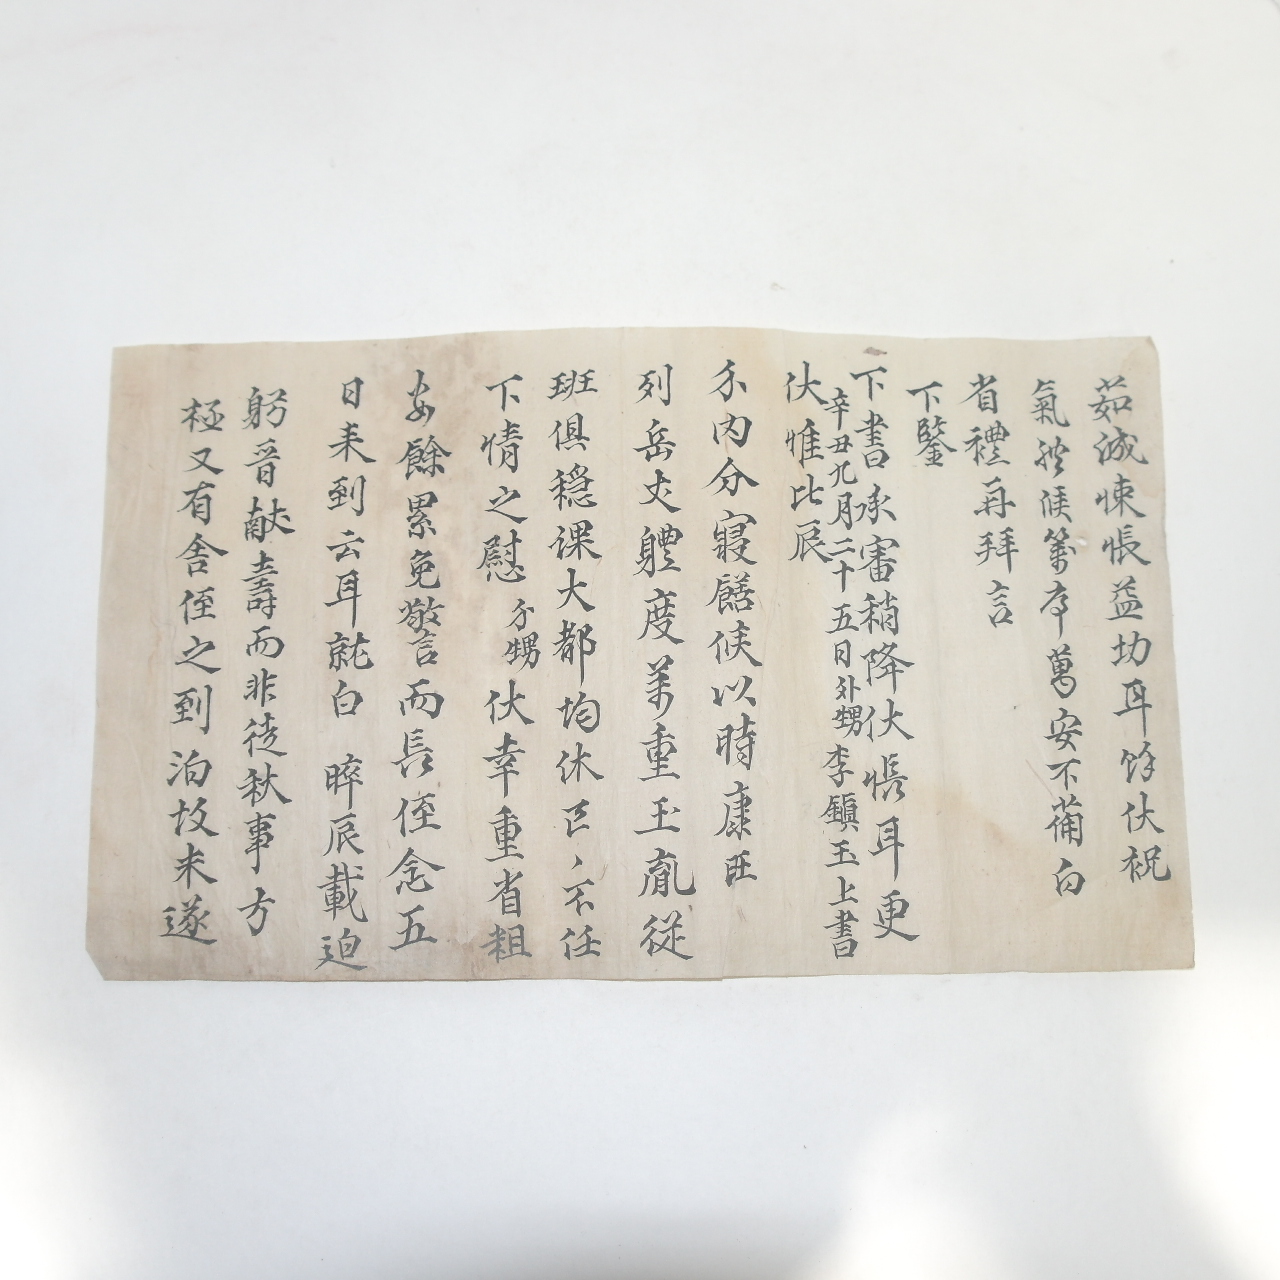 茹誠悚悵益切耳餘伏祝
氣體候萬序萬安不備白
省禮再拜言
下鑒
下書承審稍降伏悵耳更
辛丑九月二十五日外甥李鎭玉上書
伏惟比辰
內分寢饍候以時康旺
列岳丈體度萬重玉胤從
班俱穩課大都均休否、不任
下情之慰外甥伏幸重省粗
安餘累免警言而長侄念五
日來到云耳就白 晬辰載迫
躬晉献壽而非徒秋事方
極又有舍侄之到泊故未遂